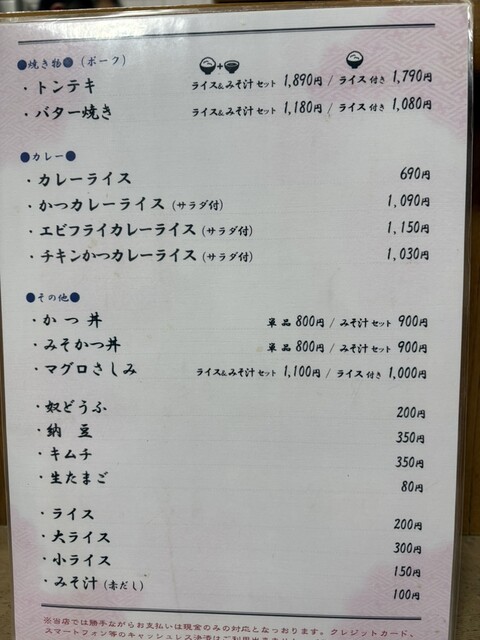 ●焼き物●（ポーク）
・トンテキ ライス&みそ汁セット 1,890円 / ライス付き 1,790円
・バター焼き ライス&みそ汁セット 1,180円 / ライス付き 1,080円
●カレー●
・カレーライス 690円
・かつカレーライス（サラダ付） 1,090円
・エビフライカレーライス（サラダ付） 1,150円
・チキンかつカレーライス（サラダ付） 1,030円
●その他●
・かつ丼 単品 800円 / みそ汁セット 900円
・みそかつ丼 単品 800円 / みそ汁セット 900円
・マグロさしみ ライス&みそ汁セット 1,100円 / ライス付き 1,000円
・奴どうふ 200円
・納豆 350円
・キムチ 350円
・生たまご 80円
・ライス 200円
・大ライス 300円
・小ライス 150円
・みそ汁（赤だし） 100円
※当店では勝手ながらお支払いは現金のみの対応となっております。クレジットカード、
スマートフォン等のキャッシュレス決済はご利用出来ません